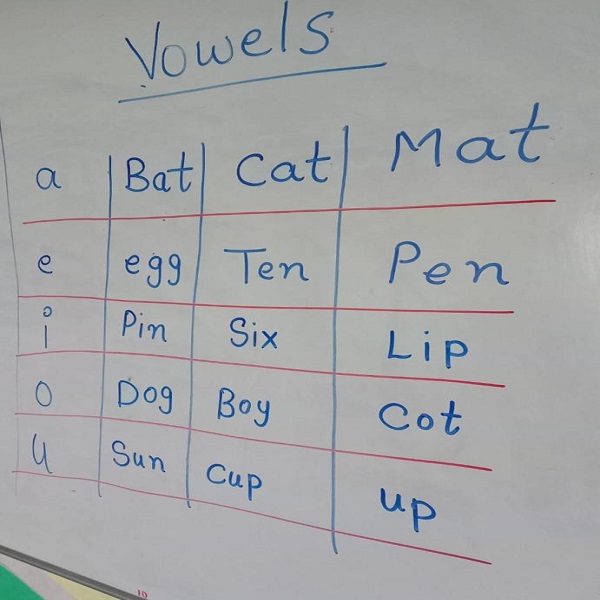 Vowels
a Bat Cat Mat
e egg Ten Pen
i Pin Six Lip
o Dog Boy Cot
u Sun Cup up